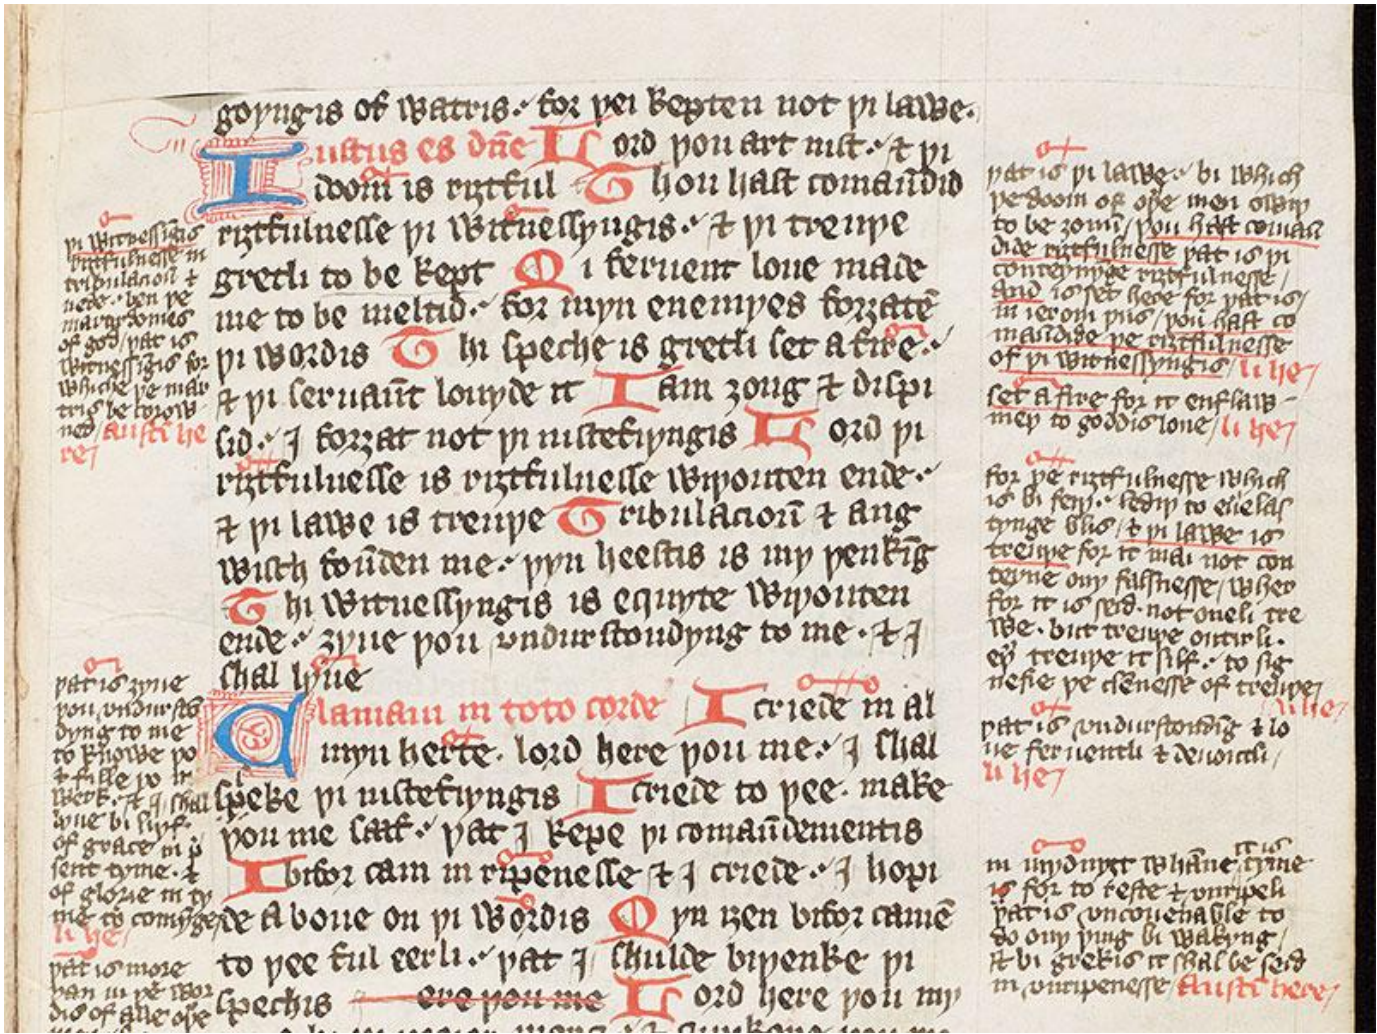 goyngis of watris· for þei kepten not þi lawe·
Iustus es dn̄e Lord þou art iust· & þi
doom is riȝtful Thou hast comaūdid
riȝtfulnesse þi witnessyngis· & þi treuþe
gretli to be kept Mi feruent loue made
me to be meltid· for myn enemyes forȝatē
þi wordis Thi speche is gretli set afire·
& þi seruaūt louyde it I am ȝong & dispi
sid· I forȝat not þi iustefiyngis Lord þi
riȝtfulnesse is riȝtfulnesse wiþouten ende·
& þi lawe is treuþe Tribulacioū & ang
wisch foūden me· þyn heestis is my þenkīg
Thi witnessyngis is equyte wiþouten
ende· ȝyue þou vndurstondyng to me· & I
shal lyue
Clamaui in toto corde I criede in al
myn herte· lord here þou me· I shal
speke þi iustefiyngis I criede to þee· make
þou me saaf· þat I kepe þi comaūdementis
I bifor cam in ripenesse & I criede· I hopi
de aboue on þi wordis Myn iȝen bifor camē
to þee ful eerli· þat I shulde biþenke þi
spechis ere þou me Lord here þou my
þi witnessīgis
riȝtfulnesse in
tribulacioū &
nede· ben þe
martirdomes
of god/ þat is
witnessīgis for
whiche þe mar
tris be corow
ned/ austī he
re/
þat is ȝyue
þou vndurstō
dyng to me
to knowe þo
& fille þo in
werk· & I shal
lyue bi lijf·
of grace in p̄
sent tyme· &
of glorie in ty
me to comyge/
li he/
þat is more
þan in þe wor
dis of alle oþe
þat is þi lawe· bi which
þe doom of oþe men owiþ
to be ȝouū/ þou hast comaū
dide riȝtfulnesse þat is þi
conteynyge riȝtfulnesse/
And is set here for þat is/
in ierom þus/ þou hast co
maūdide þe riȝtfulnesse
of þi witnessyngis/ li he/
set afire for it enflaw-
meþ to goddis loue/ li he/
for þe riȝtfulnesse which
is bi feiþ· lediþ to euelas
tynge blis/ & þi lawe is
treuþe for it mai not con
teyne ony falsnesse/ wher
for it is seid· not oneli tre
we· but treuþe outirli·
eþ̄ treuþe it silf· to sig
nefie þe clēnesse of treuþe/
li he/
þat is vndurstondīg & lo
ue feruentli & deuoutli/
li he/
it is
in mydnyȝt whāne tyme
is for to reste & vnripeli
þat is vncouenable to
do ony þing bi wakyng/
& bi grekis it shal be seid
in vnripenesse Austī heere/